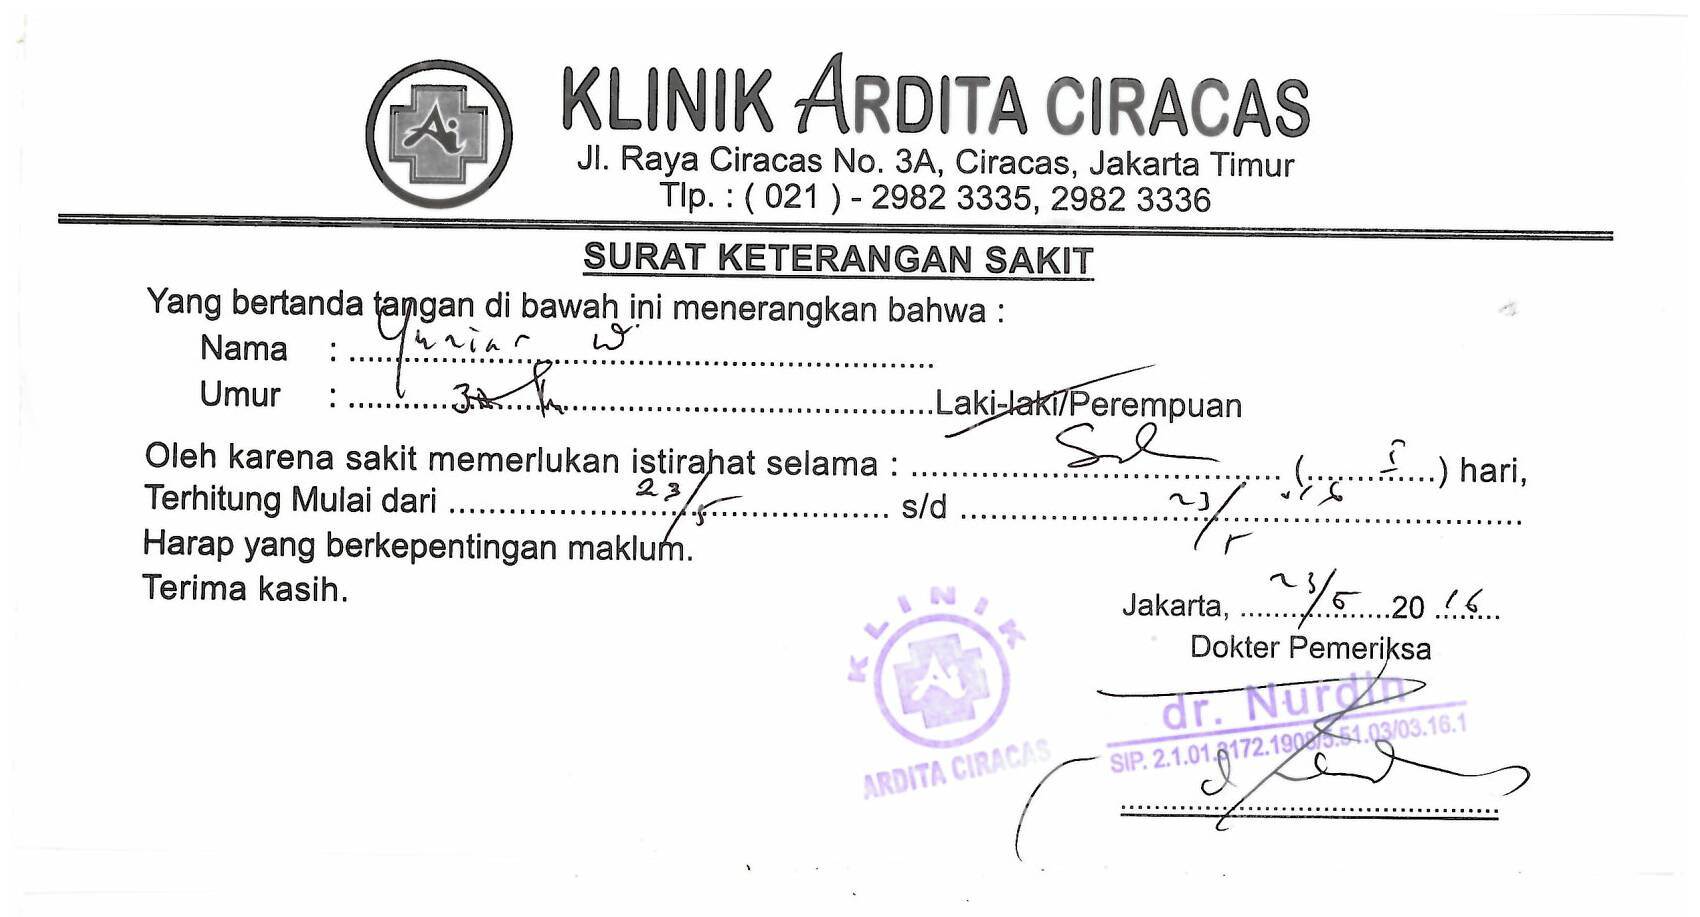 KLINIK ARDITA CIRACAS
Jl. Raya Ciracas No. 3A, Ciracas, Jakarta Timur
Tlp. : ( 021 ) - 2982 3335, 2982 3336
SURAT KETERANGAN SAKIT
Yang bertanda tangan di bawah ini menerangkan bahwa :
Nama : Yuniar W.
Umur : Laki-laki/Perempuan
Oleh karena sakit memerlukan istirahat selama : (.......1......) hari,
Terhitung Mulai dari 23/5 s/d 23/5
Harap yang berkepentingan maklum.
Terima kasih.
Jakarta, 23/5 2016
Dokter Pemeriksa
KLINIK
Ai
ARDITA CIRACAS
dr. Nurdin